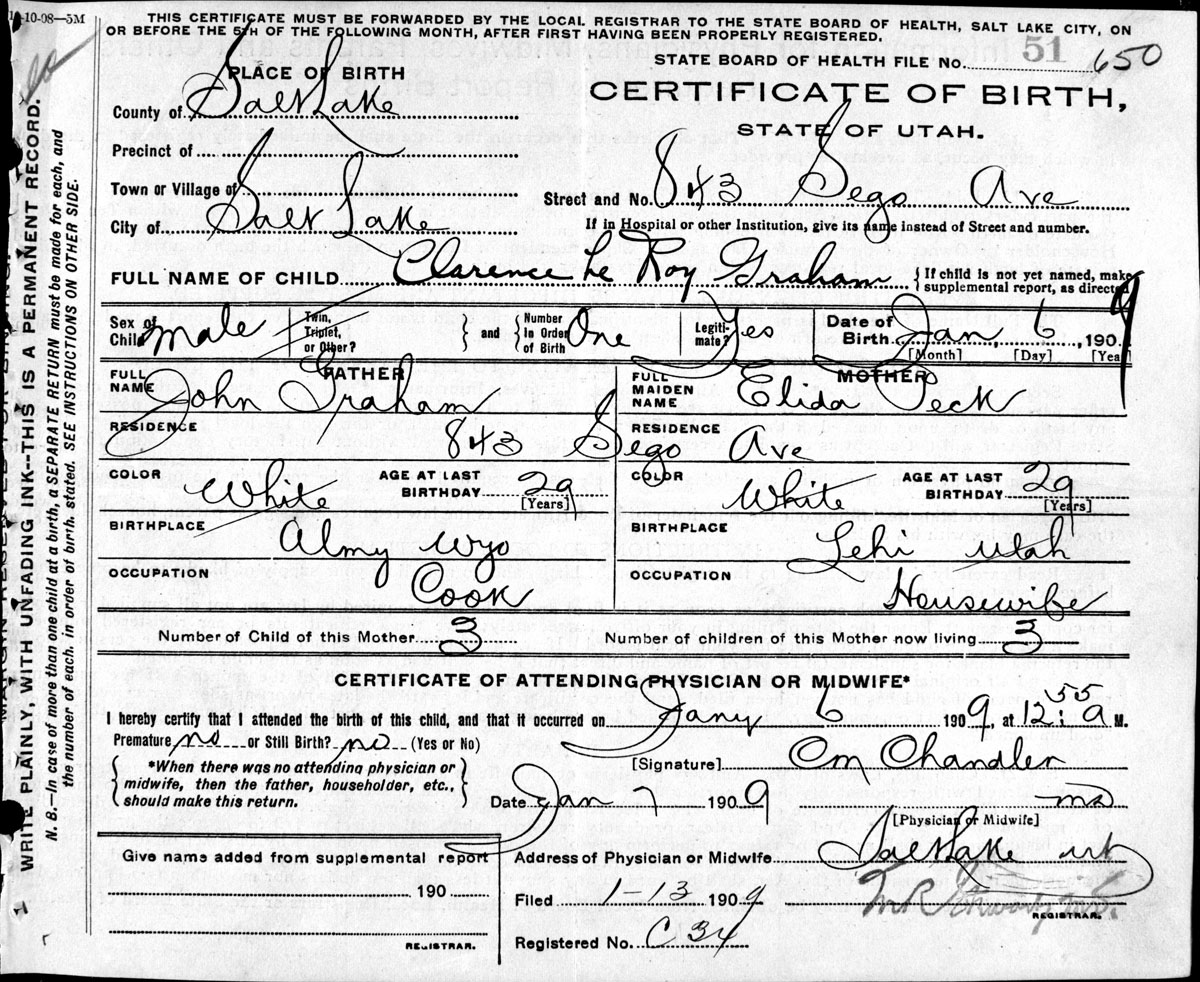 10-08—5M
THIS CERTIFICATE MUST BE FORWARDED BY THE LOCAL REGISTRAR TO THE STATE BOARD OF HEALTH, SALT LAKE CITY, ON
OR BEFORE THE 5TH OF THE FOLLOWING MONTH, AFTER FIRST HAVING BEEN PROPERLY REGISTERED.
STATE BOARD OF HEALTH FILE No. 51 650
PLACE OF BIRTH
CERTIFICATE OF BIRTH,
STATE OF UTAH.
County of Salt Lake
Precinct of
Town or Village of
Street and No. 843 Sego Ave
City of Salt Lake
If in Hospital or other Institution, give its name instead of Street and number.
FULL NAME OF CHILD Clarence Le Roy Graham { If child is not yet named, make
supplemental report, as directed
Sex of Child male Twin, Triplet, or Other? } and { Number In Order of Birth One Legiti-mate? Yes Date of Birth Jan, 6, 1909
[Month] [Day] [Year]
FATHER MOTHER
FULL NAME John Graham FULL MAIDEN NAME Elida Peck
RESIDENCE RESIDENCE
843 Sego Ave
COLOR White AGE AT LAST BIRTHDAY 29 [Years] COLOR White AGE AT LAST BIRTHDAY 29 [Years]
BIRTHPLACE Almy Wyo BIRTHPLACE Lehi Utah
OCCUPATION Cook OCCUPATION Housewife
Number of Child of this Mother 3 Number of children of this Mother now living 3
CERTIFICATE OF ATTENDING PHYSICIAN OR MIDWIFE*
I hereby certify that I attended the birth of this child, and that it occurred on Jany 6 1909, at 12:55 a M.
Premature no or Still Birth? no (Yes or No)
[Signature] Cm Chandler
{ *When there was no attending physician or
midwife, then the father, householder, etc.,
should make this return. }
Date Jan 7 1909 md
[Physician or Midwife]
Give name added from supplemental report
Address of Physician or Midwife Salt Lake ut
190
Filed 1-13 1909
REGISTRAR.
Registered No. C 34
REGISTRAR.
WRITE PLAINLY, WITH UNFADING INK--THIS IS A PERMANENT RECORD.
N. B.—In case of more than one child at a birth, a SEPARATE RETURN must be made for each, and
the number of each, in order of birth, stated. SEE INSTRUCTIONS ON OTHER SIDE.